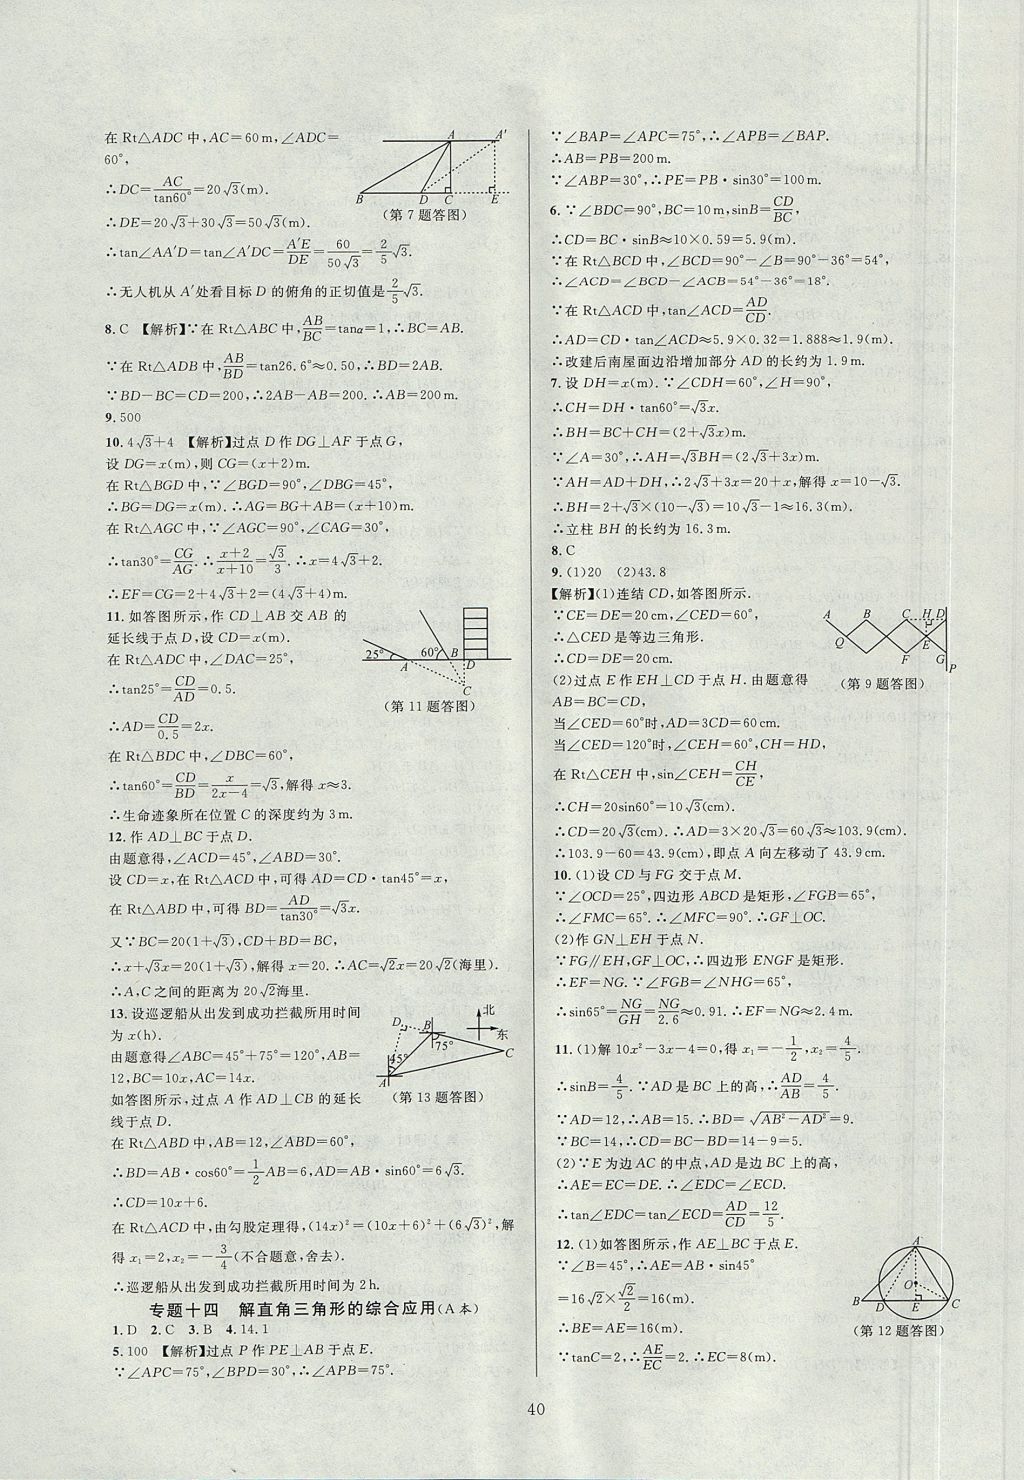 在 Rt△ADC 中,AC=60 m,∠ADC=
60°,
∴DC=AC/tan60°=20√3(m).
∴DE=20√3+30√3=50√3(m).
∴tan∠AA′D=tan∠A′DC=A′E/DE=60/50√3=2/5√3.
∴无人机从 A′处看目标 D 的俯角的正切值是2/5√3.
A A′ B D C E
(第 7 题答图)
8. C 【解析】∵在 Rt△ABC 中,AB/BC=tanα=1,∴BC=AB.
∵在 Rt△ADB 中,AB/BD=tan26.6°≈0.50,∴BD=2AB.
∵BD-BC=CD=200,∴2AB-AB=200. ∴AB=200 m.
9. 500
10. 4√3+4 【解析】过点 D 作 DG⊥AF 于点 G,
设 DG=x(m),则 CG=(x+2)m.
在 Rt△BGD 中,∵∠BGD=90°,∠DBG=45°,
∴BG=DG=x(m). ∴AG=BG+AB=(x+10)m.
在 Rt△AGC 中,∵∠AGC=90°,∠CAG=30°,
∴tan30°=CG/AG. ∴(x+2)/(x+10)=√3/3. ∴x=4√3+2.
∴EF=CG=4√3+2+2=(4√3+4)m.
11. 如答图所示,作 CD⊥AB 交 AB 的
延长线于点 D,设 CD=x(m).
在 Rt△ADC 中,∠DAC=25°,
∴tan25°=CD/AD=0.5.
∴AD=CD/0.5=2x.
25° 60° A B D C
(第 11 题答图)
在 Rt△BDC 中,∠DBC=60°,
∴tan60°=CD/BD=x/(2x-4)=√3,解得 x≈3.
∴生命迹象所在位置 C 的深度约为 3 m.
12. 作 AD⊥BC 于点 D.
由题意得,∠ACD=45°,∠ABD=30°.
设 CD=x,在 Rt△ACD 中,可得 AD=CD·tan45°=x,
在 Rt△ABD 中,可得 BD=AD/tan30°=√3x.
又∵BC=20(1+√3),CD+BD=BC,
∴x+√3x=20(1+√3),解得 x=20. ∴AC=√2x=20√2(海里).
∴A,C 之间的距离为 20√2海里.
13. 设巡逻船从出发到成功拦截所用时间
为 x(h).
由题意得∠ABC=45°+75°=120°,AB=
12,BC=10x,AC=14x.
如答图所示,过点 A 作 AD⊥CB 的延长
线于点 D.
北 东 D B 75° C 45° A
(第 13 题答图)
在 Rt△ABD 中,AB=12,∠ABD=60°,
∴BD=AB·cos60°=1/2AB=6,AD=AB·sin60°=6√3.
∴CD=10x+6.
在 Rt△ACD 中,由勾股定理得,(14x)²=(10x+6)²+(6√3)²,解
得 x₁=2,x₂=-3/4(不合题意,舍去).
∴巡逻船从出发到成功拦截所用时间为 2 h.
专题十四 解直角三角形的综合应用(A 本)
1. D 2. C 3. B 4. 14.1
5. 100 【解析】过点 P 作 PE⊥AB 于点 E.
∵∠APC=75°,∠BPD=30°,∴∠APB=75°.
∵∠BAP=∠APC=75°,∴∠APB=∠BAP.
∴AB=PB=200 m.
∵∠ABP=30°,∴PE=PB·sin30°=100 m.
6. ∵∠BDC=90°,BC=10 m,sinB=CD/BC,
∴CD=BC·sinB≈10×0.59=5.9(m).
∵在 Rt△BCD 中,∠BCD=90°-∠B=90°-36°=54°,
∴∠ACD=∠BCD-∠ACB=54°-36°=18°.
∵在 Rt△ACD 中,tan∠ACD=AD/CD.
∴AD=CD·tan∠ACD≈5.9×0.32=1.888≈1.9(m).
∴改建后南屋面边沿增加部分 AD 的长约为 1.9 m.
7. 设 DH=x(m). ∵∠CDH=60°,∠H=90°,
∴CH=DH·tan60°=√3x.
∴BH=BC+CH=(2+√3x)m.
∵∠A=30°,∴AH=√3BH=(2√3+3x)m.
∵AH=AD+DH,∴2√3+3x=20+x,解得 x=10-√3.
∴BH=2+√3×(10-√3)=10√3-1≈16.3(m).
∴立柱 BH 的长约为 16.3 m.
8. C
9. (1)20 (2)43.8
【解析】(1)连结 CD,如答图所示.
∵CE=DE=20 cm,∠CED=60°,
∴△CED 是等边三角形.
∴CD=DE=20 cm.
(2)过点 E 作 EH⊥CD 于点 H. 由题意得
AB=BC=CD,
A B C H D Q E F G P
(第 9 题答图)
当∠CED=60°时,AD=3CD=60 cm.
当∠CED=120°时,∠CEH=60°,CH=HD,
在 Rt△CEH 中,sin∠CEH=CH/CE,
∴CH=20sin60°=10√3(cm).
∴CD=20√3(cm). ∴AD=3×20√3=60√3≈103.9(cm).
∴103.9-60=43.9(cm),即点 A 向左移动了 43.9 cm.
10. (1)设 CD 与 FG 交于点 M.
∵∠OCD=25°,四边形 ABCD 是矩形,∠FGB=65°,
∴∠FMC=65°. ∴∠MFC=90°. ∴GF⊥OC.
(2)作 GN⊥EH 于点 N.
∵FG∥EH,GF⊥OC,∴四边形 ENGF 是矩形.
∴EF=NG. ∵∠FGB=∠NHG=65°,
∴sin65°=NG/GH=NG/2.6≈0.91. ∴EF=NG≈2.4 m.
11. (1)解 10x²-3x-4=0,得 x₁=-1/2,x₂=4/5.
∴sinB=4/5. ∵AD 是 BC 上的高,∴AD/AB=4/5.
∵AD=12,∴AB=15. ∴BD=√(AB²-AD²)=9.
∵BC=14,∴CD=BC-BD=14-9=5.
(2)∵E 为边 AC 的中点,AD 是边 BC 上的高,
∴AE=EC=DE. ∴∠EDC=∠ECD.
∴tan∠EDC=tan∠ECD=AD/CD=12/5.
12. (1)如答图所示,作 AE⊥BC 于点 E.
∵∠B=45°,∴AE=AB·sin45°
=16√2×√2/2=16(m).
∴BE=AE=16(m).
∵tanC=2,∴AE/EC=2. ∴EC=8(m).
A O B D E C
(第 12 题答图)
40